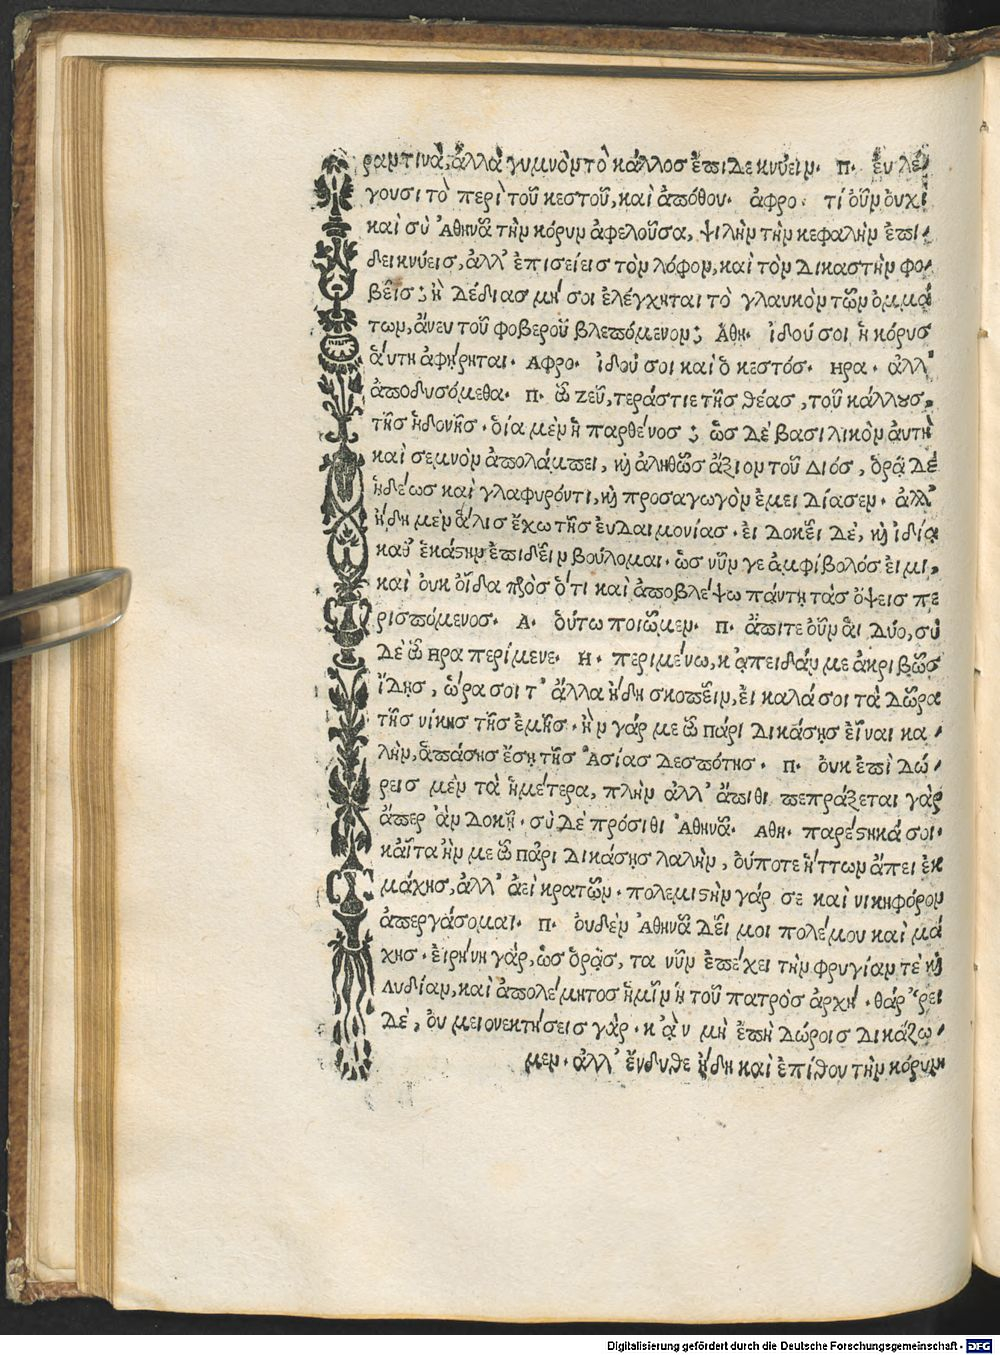 ραντινὰ, ἀλλὰ γυμνὸν τὸ κάλλοσ ἐπιδεκνύειν. Π. ἐυ λέ/
γουσι τὸ περὶ τοῦ κεστοῦ, καὶ ἀπόθου. ἀφρο. τί ὀῦν ὀυχὶ
καὶ σὺ Ἀθηνᾶ τὴν κόρυν ἀφελοῦσα, ψιλὴν τὴν κεφαλὴν ἐπι/
δεικνύεισ, ἀλλ' ἐπισείεισ τὸν λόφον, καὶ τὸν Δικαστὴν φο/
βεῖσ; ἢ Δέδιασ μή σοι ἐλέγχηται τὸ γλαυκὸν τῶν ὀμμά
των, ἄνευ τοῦ φοβεροῦ βλεπόμενον; Ἀθη. ἰδού σοι ἡ κόρυσ
ἁύτη ἀφῄρηται. Αφρο. ἰδού σοι καὶ ὁ κεστόσ. Ηρα. ἀλλ'
ἀποδυσόμεθα. Π. ὦ Ζεῦ, τεράστιε τῆσ θέασ, τοῦ κάλλουσ,
τῆσ ἡδονῆσ. ὁία μὲν ἡ παρθένοσ; ὡσ Δὲ βασιλικὸν ἀυτὴ
καὶ σεμνὸν ἀπολάμπει, καὶ ἀληθῶσ ἄξιον τοῦ Διόσ, ὁρᾷ Δὲ
ἡδέωσ καὶ γλαφυρόντι, καὶ προσαγωγὸν ἐμειδίασεν. ἀλλ'
ἤδη μὲν ἅλισ ἔχω τῆσ ἐυδαιμονίασ. ἐι δοκεῖ Δὲ, καὶ ἰδίᾳ
καθ' ἑκάστην ἐπιδεῖν βούλομαι. ὡσ νῦν γε ἀμφίβολόσ ἐιμι,
καὶ ὀυκ ὀῖδα πρὸσ ὅ,τι καὶ ἀποβλέψω πάντῃ τὰσ ὄψεισ πε
ρισπόμενοσ. Α. ὁύτω ποιῶμεν. Π. ἄπιτε ὀῦν ἁι δύο, σὺ
Δὲ ὦ Ηρα περίμενε. Η. περιμένω, κἀπειδάν με ἀκριβῶσ
ἴδῃσ, ὥρα σοι τ' ἄλλα ἤδη σκοπεῖν, ἐι καλά σοι τὰ Δῶρα
τῆσ νίκησ τῆσ ἐμῆσ. ἢν γάρ με ὦ πάρι Δικάσῃσ ἐῖναι κα/
λὴν, ἁπάσησ ἔσῃ τῆσ Ἀσίασ Δεσπότησ. Π. ὀυκ ἐπὶ Δώ/
ρεισ μὲν τὰ ἡμέτερα, πλὴν ἀλλ' ἄπιθι πεπράξεται γὰρ
ἅπερ ἂν Δοκῇ. σὺ Δὲ πρόσιθι Ἀθηνᾶ. Αθη. παρέστηκά σοι.
κᾆτα ἤν με ὦ πάρι Δικάσῃσ λαλὴν, ὀύποτε ἥττων ἄπει ἐκ
μάχησ, ἀλλ' ἀεὶ κρατῶν. πολεμιστὴν γάρ σε καὶ νικηφόρον
ἀπεργάσομαι. Π. ὀυδὲν Ἀθηνᾶ Δεῖ μοι πολέμου καὶ μά
χησ. ἐιρήνη γὰρ, ὡσ ὁρᾷσ, τα νῦν ἐπέχει τὴν φρυγίαν τὲ καὶ
Λυδίαν, καὶ ἀπολέμητοσ ἡμῖν ἡ τοῦ πατρὸσ ἀρχή. θάρ'ρει
Δὲ, ὀυ μειονεκτήσεισ γὰρ. κἂν μὴ ἐπὴ Δώροισ Δικάζω/
μεν. ἀλλ' ἔνδυθε ἤδη καὶ ἐπίθου τὴν κόρυν
Digitalisierung gefördert durch die Deutsche Forschungsgemeinschaft - DFG